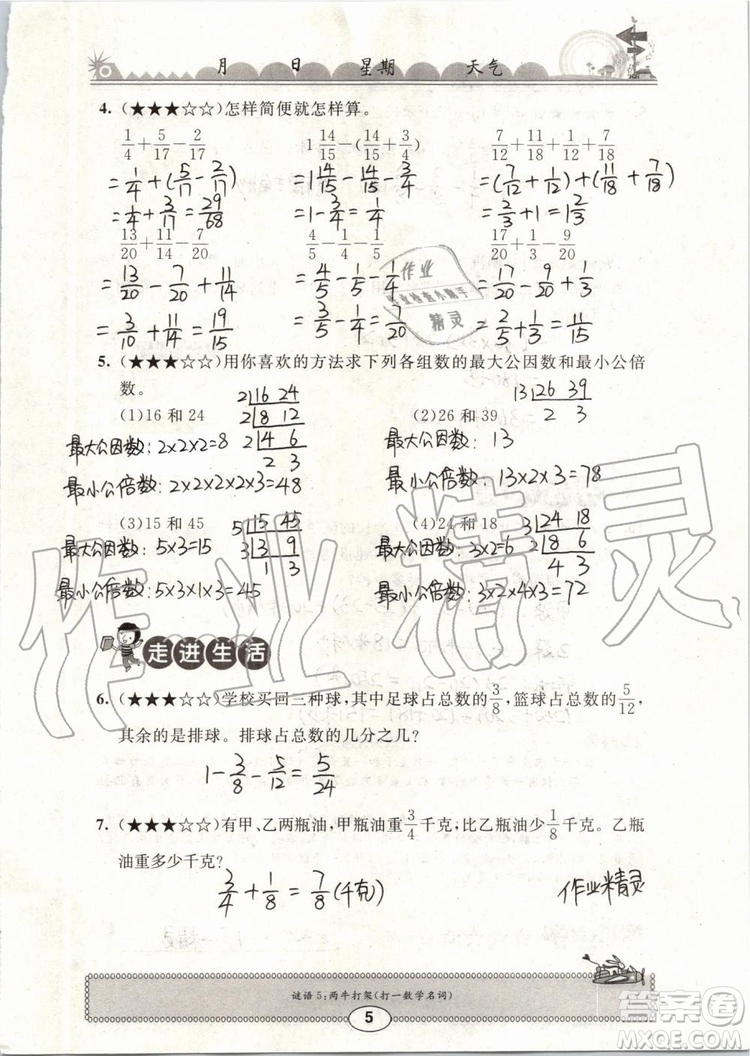 月 日 星期 天气
4. (★★★☆☆)怎样简便就怎样算。
1/4+5/17-2/17 1 14/15-(14/15+3/4) 7/12+11/18+1/12+7/18
=1/4+(5/17-2/17) =1 14/15-14/15-3/4 =(7/12+1/12)+(11/18+7/18)
=1/4+3/17=29/68 =1-3/4=1/4 =2/3+1=1 2/3
13/20+11/14-7/20 4/5-1/4-1/5 17/20+1/3-9/20
=13/20-7/20+11/14 =4/5-1/5-1/4 =17/20-9/20+1/3
=3/10+11/14= =3/5-1/4=7/20 =2/5+1/3=11/15
5. (★★★☆☆)用你喜欢的方法求下列各组数的最大公因数和最小公倍
数。
(1)16 和 24 2 16 24 (2)26 和 39 13 26 39
2 8 12 2 3
2 4 6
2 3
最大公因数:2×2×2=8 最大公因数:13
最小公倍数:2×2×2×2×3=48 最小公倍数:13×2×3=78
(3)15 和 45 5 15 45 (4)24 和 18 3 24 18
3 3 9 2 8 6
1 3 4 3
最大公因数:5×3=15 最大公因数:3×2=6
最小公倍数:5×3×1×3=45 最小公倍数:3×2×4×3=72
走进生活
6. (★★★☆☆)学校买回三种球,其中足球占总数的3/8,篮球占总数的5/12,
其余的是排球。排球占总数的几分之几?
1-3/8-5/12=5/24
7. (★★★☆☆)有甲、乙两瓶油,甲瓶油重3/4千克,比乙瓶油少1/8千克。乙瓶
油重多少千克?
3/4+1/8=7/8(千克) 作业精灵
谜语 5:两牛打架(打一数学名词)
5
作业
精灵
作业精灵
答案圈
MXQE.COM